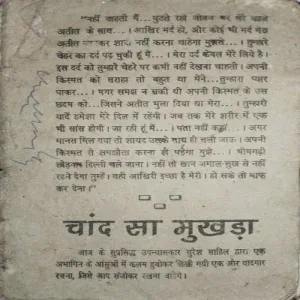 "नहीं चाहती मैं... घुटते रहो जीवन भर मेरे साथ
अतीत के साथ... आखिर मर्द हो, और कोई भी मर्द मेरा
अतीत कर शादी नहीं करना चाहेगा मुझसे... तुम्हारे
चेहरे का दर्द पढ़ चुकी हूं मैं... मेरा दर्द केवल मेरे लिये है।
इस दर्द को तुम्हारे चेहरे पर कभी नहीं देखना चाहती। अपनी
किस्मत को सराहा तो बहुत था मैंने... तुम्हारा प्यार
पाकर... मगर समझ न सकी थी अपनी किस्मत के उस
छदम को, जिसने अतीत भुला दिया था मेरा... तुम्हारी
यादें हमेशा मेरे दिल में रहेंगी। जब तक मेरे शरीर में एक
भी सांस होगी। जा रही हूं मैं... पता नहीं कहां। अगर
मानव मिल गया तो शायद उसके साथ ही चली जाऊं। अपनी
किस्मत से समझौता करना ही पड़ेगा मुझे... श्रीमगढ़ी
छोड़कर दिल्ली चले जाना। नहीं तो खान अंगाल सुख से नहीं
रहने देगा तुम्हें। यही आखिरी इच्छा है मेरी। हो सके तो माफ
कर देना।"
चांद सा मुखड़ा
आज के सुप्रसिद्ध उपन्यासकार सुरेश साहिल द्वारा एक
अभागिन के आंसुओं में कलम डुबोकर लिखी गयी एक और यादगार
रचना, जिसे आप संजोकर रखना चाहेंगे।